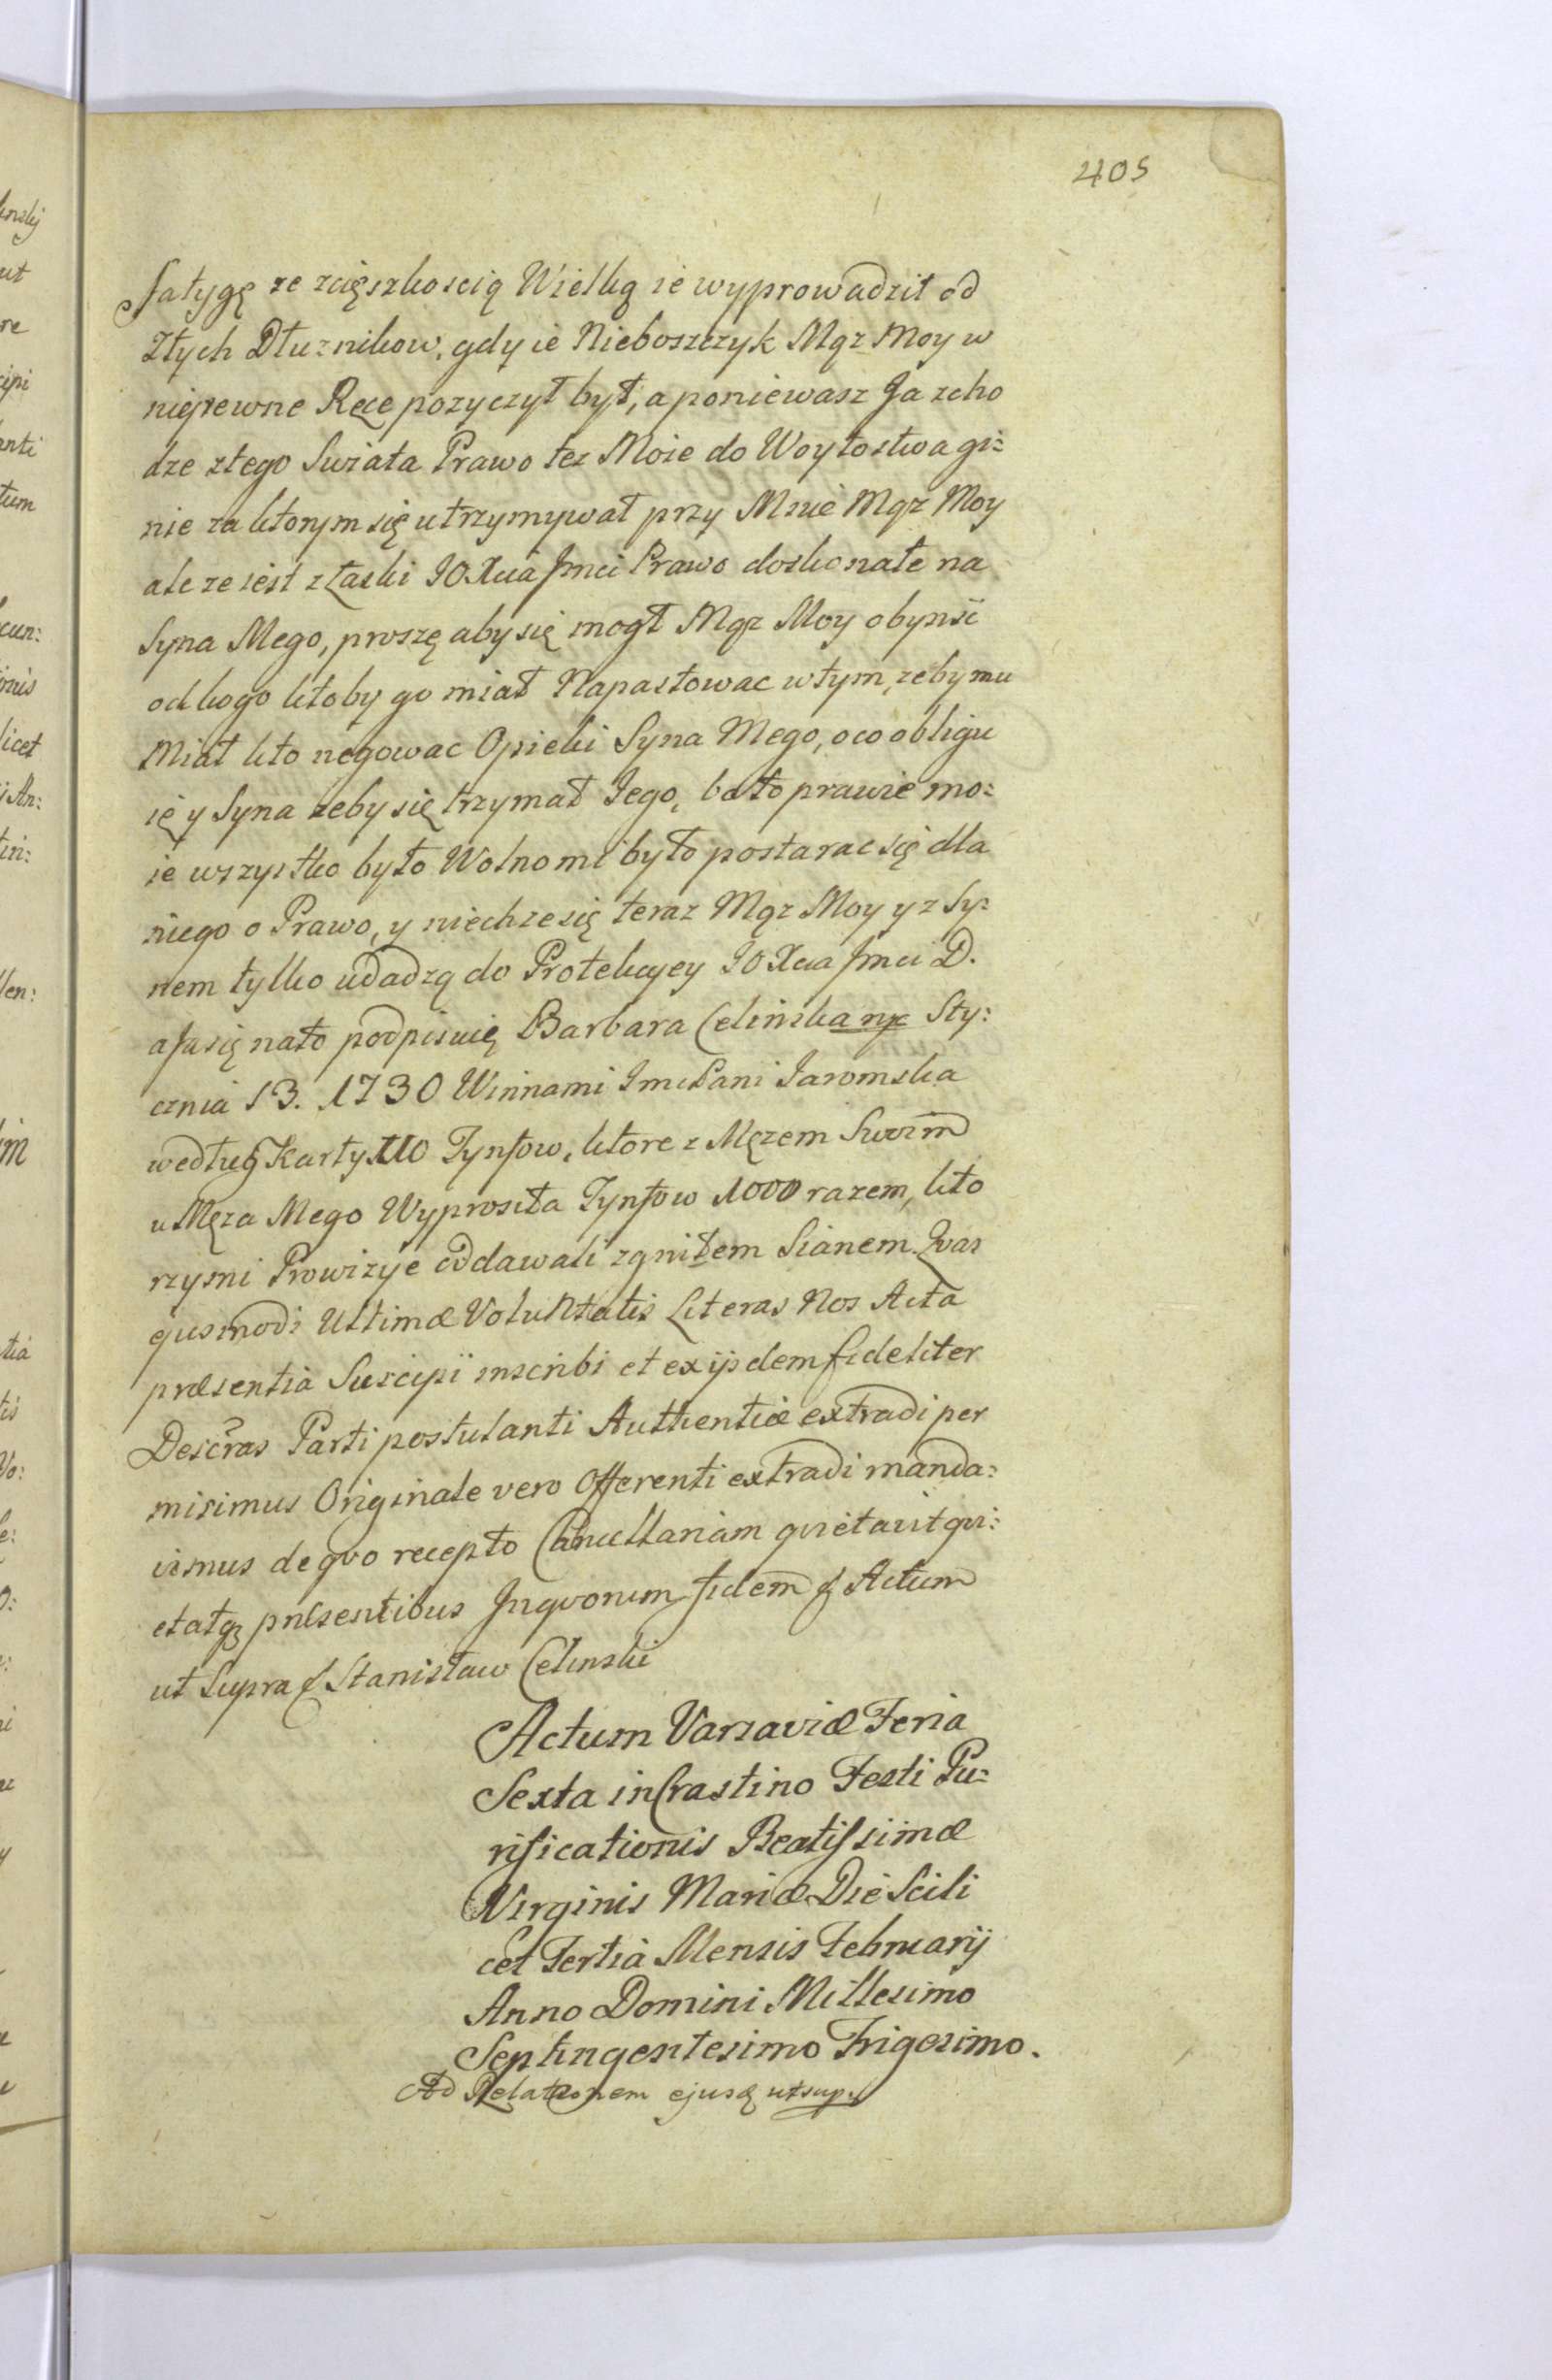 405
fatygę ze zcięszkoscią Wielką ie wyprowadził od
Złych Dłuznikow, gdy ie Nieboszczyk Mąz Moy w
niepewne Ręce pozyczył był, a poniewasz Ja zcho
dze ztego Swiata Prawo tez Moie do Woytostwa gi:
nie za ktorym się utrzymywał przy Mnie Mąz Moy
ale ze iest z Łaski JOXcia Jmci Prawo doskonałe na
Syna Mego, proszę aby się mogł Mąz Moy obynść
od kogo ktoby go miał Napastowac w tym, zeby mu
Miał kto negowac Opieki Syna Mego, o co obligu
ię y Syna zeby się trzymał Jego, bo to prawie mo:
ie wszystko było Wolno mi było postarac się dla
niego o Prawo, y niechze się teraz Mąz Moy y z Sy:
nem tylko udadzą do Protekcyey JOXcia Jmci D.
a Ja się na to podpisuię Barbara Celinska mp Sty:
cznia 13. 1730 Winna mi Jmc Pani Jaromska
według Karty 110 Tynfow, ktore z Męzem Swoim
u Męza Mego Wyprosiła Tynfow 1000 razem, kto
rzy mi Prowizye oddawali zgniłem Sianem. Qvas
ejusmodi Ultimæ Voluntatis Literas Nos Acta
præsentia Suscipi inscribi et ex ijsdem fideliter
Descras Parti postulanti Authenticæ extradi per
misimus Originale vero Offerenti extradi manda:
vimus de qvo recepto Cancellariam qvietavit qvi:
etatq præsentibus Inqvorum fidem & Actum
ut Supra & Stanisław Celinski
Actum Varsaviæ Feria
Sexta in Crastino Festi Pu:
rificationis Beatissimæ
Virginis Mariæ Die Scili
cet Tertia Mensis Februarij
Anno Domini Millesimo
Septingentesimo Trigesimo.
Ad Relationem ejusd ut sup.